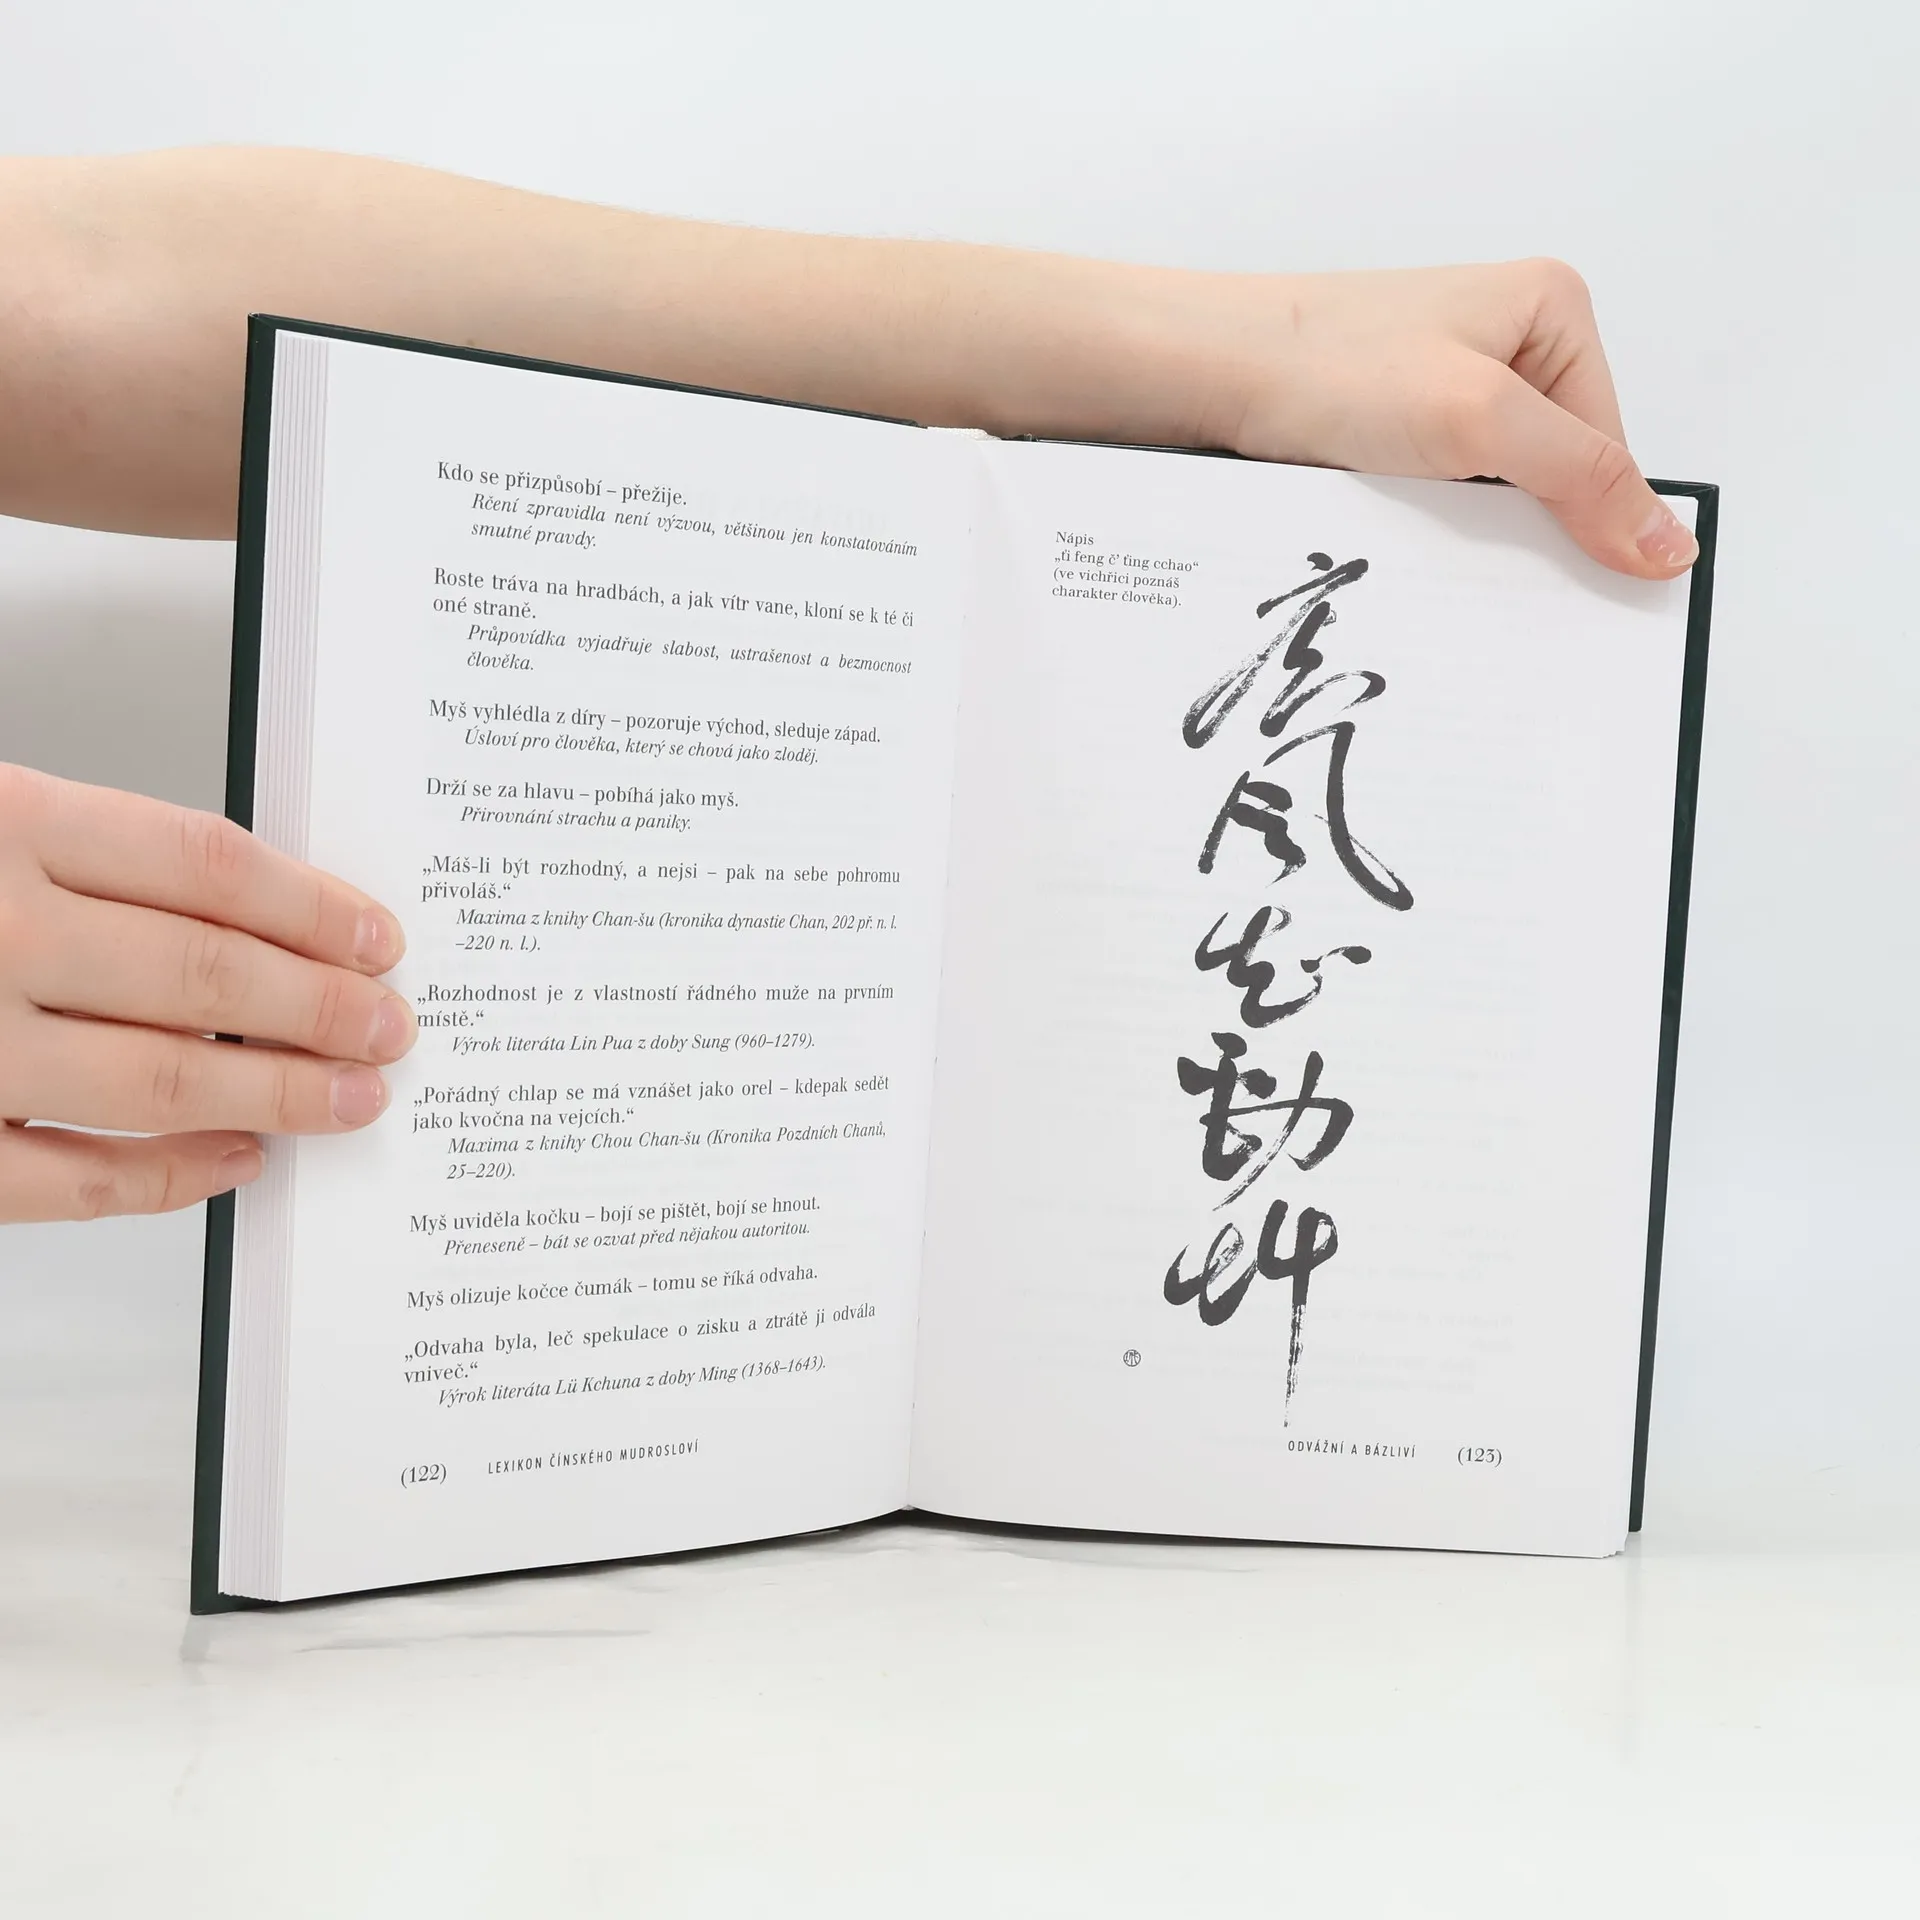 Kdo se přizpůsobí – přežije.
Rčení zpravidla není výzvou, většinou jen konstatováním
smutné pravdy.
Roste tráva na hradbách, a jak vítr vane, kloní se k té či
oné straně.
Průpovídka vyjadřuje slabost, ustrašenost a bezmocnost
člověka.
Myš vyhlédla z díry – pozoruje východ, sleduje západ.
Úsloví pro člověka, který se chová jako zloděj.
Drží se za hlavu – pobíhá jako myš.
Přirovnání strachu a paniky.
„Máš-li být rozhodný, a nejsi – pak na sebe pohromu
přivoláš.“
Maxima z knihy Chan-šu (kronika dynastie Chan, 202 př. n. l.
–220 n. l.).
„Rozhodnost je z vlastností řádného muže na prvním
místě.“
Výrok literáta Lin Pua z doby Sung (960–1279).
„Pořádný chlap se má vznášet jako orel – kdepak sedět
jako kvočna na vejcích.“
Maxima z knihy Chou Chan-šu (Kronika Pozdních Chanů,
25–220).
Myš uviděla kočku – bojí se pištět, bojí se hnout.
Přeneseně – bát se ozvat před nějakou autoritou.
Myš olizuje kočce čumák – tomu se říká odvaha.
„Odvaha byla, leč spekulace o zisku a ztrátě ji odvála
vniveč.“
Výrok literáta Lü Kchuna z doby Ming (1368–1643).
(122) LEXIKON ČÍNSKÉHO MUDROSLOVÍ
Nápis
„ťi feng č’ ťing cchao“
(ve vichřici poznáš
charakter člověka).
疾风知劲艸
ODVÁŽNÍ A BÁZLIVÍ (123)